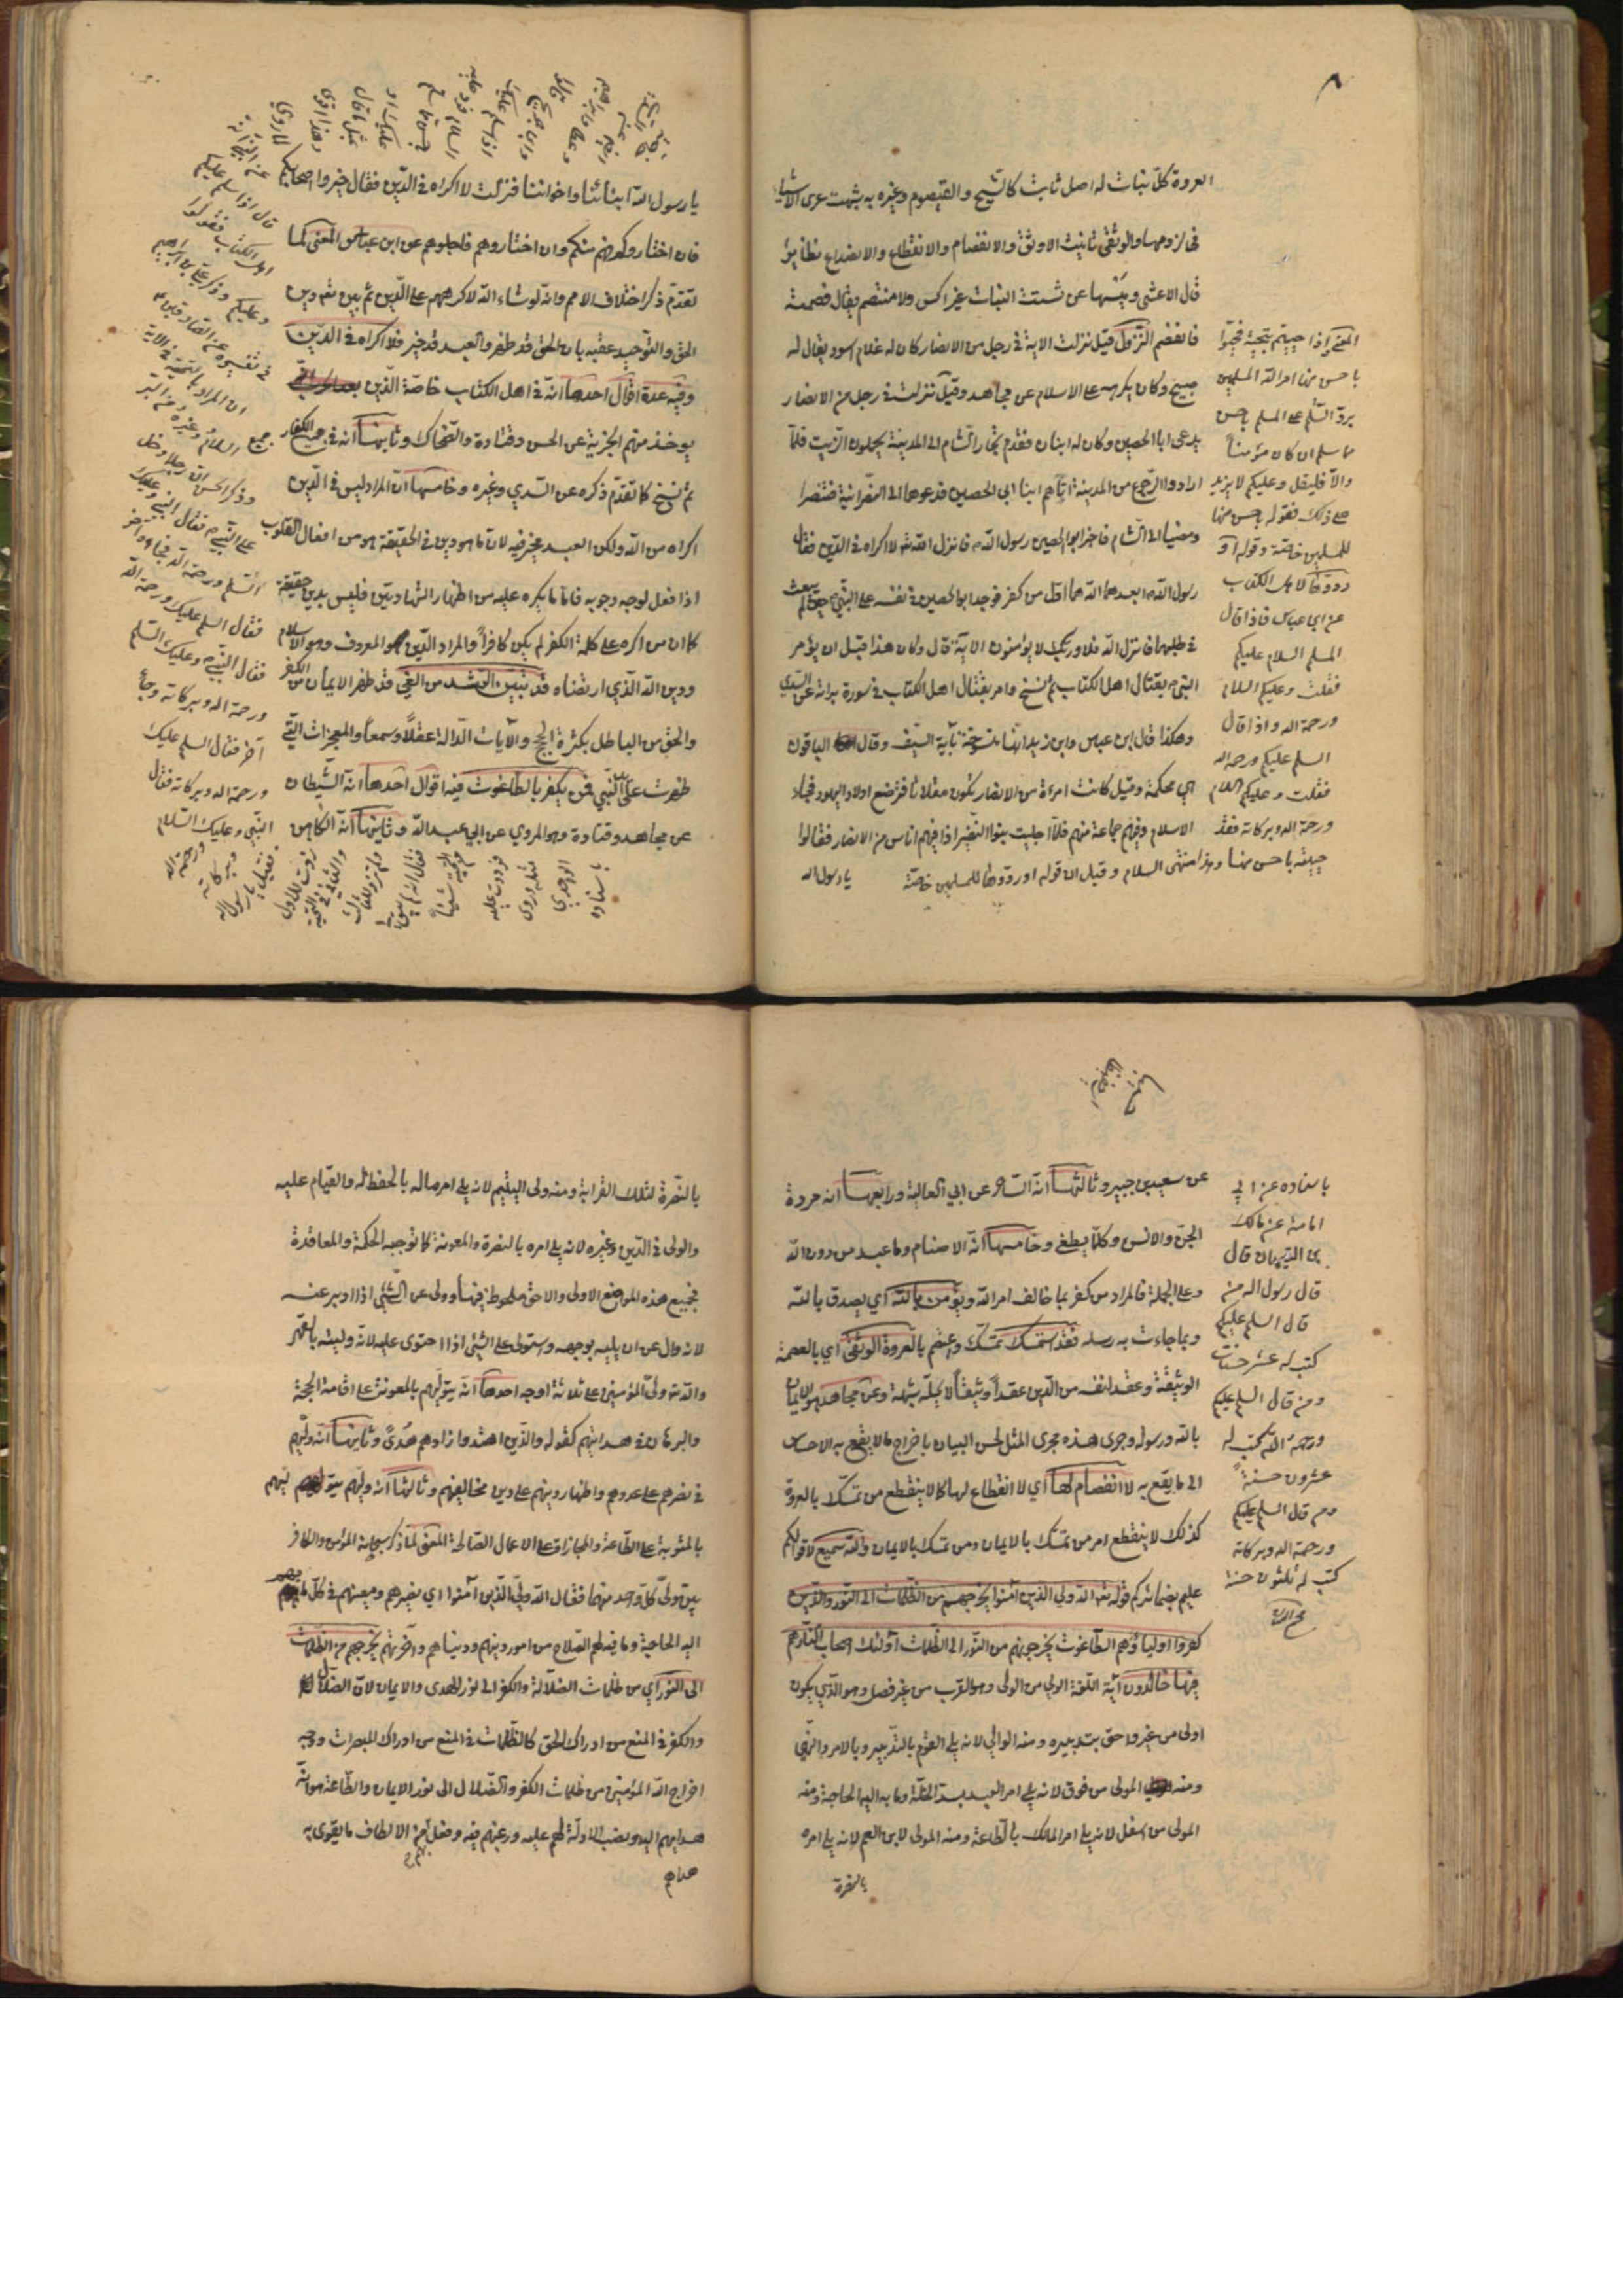 العروة كلّ نبات له اصل ثابت كالشيح والقيصوم وغيره به شبهت عرى الاشياء
في لزومها والوثقى تانيث الاوثق والانفصام والانقطاع والانصداع نظاير
قال الاعشى ومبسمها عن شتيت النبات غير اكس ولا منقصم يقال فصمته
فانفصم النزول قيل نزلت الاية في رجل من الانصار كان له غلام اسود يقال له
صبيح وكان يكرهه على الاسلام عن مجاهد وقيل نزلت في رجل من الانصار
يدعى ابا الحصين وكان له ابنان فقدم تجار الشام الى المدينة يحملون الزيت فلمّا
ارادوا الرجوع من المدينة اتاهم ابنا ابي الحصين فدعوهما الى النصرانية فتنصرا
ومضيا الى الشام فاخبر ابو الحصين رسول الله فانزل الله لا اكراه في الدّين فقال
رسول الله ابعدهما الله هما اوّل من كفر فوجد ابو الحصين في نفسه على النبي حين لم يبعث
في طلبهما فانزل الله فلا وربّك لا يؤمنون الاية قال وكان هذا قبل ان يؤمر
النبي بقتال اهل الكتاب ثم نسخ وامر بقتال اهل الكتاب في سورة براءة عن السّدي
وهكذا قال ابن عباس وابن زيد انها منسوخة باية السيف وقال الباقون
هي محكمة وقيل كانت امراة من الانصار تكون مقلاتا فترضع اولاد اليهود فجاء
الاسلام وفيهم جماعة منهم فلمّا اجليت بنوا النضير اذا فيهم اناس من الانصار فقالوا
يا رسول الله
المعنى واذا حييتم بتحية فحيّوا
باحسن منها امر الله المسلمين
بردّ السّلم على المسلم باحسن
ممّا سلم ان كان مؤمناً
والّا فليقل وعليكم لا يزيد
على ذلك فقوله باحسن منها
للمسلمين خاصّة وقوله او
ردّوها لاهل الكتاب
عن ابن عباس فاذا قال
المسلم السلام عليكم
فقلت وعليكم السلام
ورحمة الله واذا قال
السلم عليكم ورحمة الله
فقلت وعليكم السلام
ورحمة الله وبركاته فقد
حييته باحسن منها وهذا منتهى السلام وقيل ان قوله او ردّوها للمسلمين خاصّة
يا رسول الله ابنائنا واخواننا فنزلت لا اكراه في الدّين فقال خيروا اصحابكم
فان اختاروكم فهم منكم وان اختاروهم فاجلوهم عن ابن عباس المعنى لما
تقدّم ذكر اختلاف الامم وانه لو شاء الله لاكرههم على الدّين ثم بيّن تعالى دين
الحق والتوحيد عقبه بان الحق قد ظهر والعبد قد خيّر فلا اكراه في الدّين
وفيه عدة اقوال احدها انّه في اهل الكتاب خاصّة الّذين
يوخذ منهم الجزية عن الحسن وقتادة والضحاك وثانيها انه في جميع الكفار
ثم نسخ كما تقدّم ذكره عن السّدي وغيره وخامسها انّ المراد ليس في الدّين
اكراه من الله ولكن العبد مخير فيه لان ما هو دين في الحقيقة هو من افعال القلوب
اذا فعل لوجه وجوبه فامّا ما يكره عليه من اظهار الشهادتين فليس بدين حقيقة
كما ان من اكره على كلمة الكفر لم يكن كافراً والمراد الدّين المعروف وهو الاسلام
ودين الله الّذي ارتضاه قد تبيّن الرشد من الغيّ قد ظهر الايمان من الكفر
والحق من الباطل بكثرة الحجج والايات الدّالة عقلاً وسمعاً والمعجزات التي
ظهرت على يد النبّي فمن يكفر بالطاغوت فيه اقوال احدها انّه الشيطان
عن مجاهد وقتادة وهو المروي عن ابي عبد الله وثانيها انّه الكاهن
قال اذا سلّم عليكم
اهل الكتاب فقولوا
وعليكم وذكر علي بن ابراهيم
في تفسيره عن الصادقين
ان المراد بالتحية في الاية
السلام وغيره من البرّ
وذكر الحسن انّ رجلا دخل
على النبّي فقال النبي وعليك
السّلم ورحمة الله فجاءه آخر
فقال السلم عليك ورحمة الله
فقال النبّي وعليك السّلم
ورحمة الله وبركاته وجاء
آخر فقال السلم عليك
ورحمة الله وبركاته فقال
النبّي وعليك السّلام
ورحمة الله
وبركاته
فقيل يا رسول الله
زدت للاول
والثاني في التحية
ولم تزد للثالث
فقال انه لم يبق لي
من التحية شيئاً
فرددت عليه
مثله وروى
الواحدي
باسناده
عن سعيد بن جبير وثالثها انّه السّاحر عن ابي العالية ورابعها انه مردة
الجنّ والانس وكلّما يطغى وخامسها انّه الاصنام وما عبد من دون الله
وعلى الجملة فالمراد من كفر بما خالف امر الله ويؤمن بالله اي يصدق بالله
وبما جاءت به رسله فقد استمسك تمسّك واعتصم بالعروة الوثقى اي بالعصمة
الوثيقة وعقد لنفسه من الدّين عقداً وثيقاً لا يحلّه شبهة وعن مجاهد هو الايمان
بالله ورسوله وجرى هذه مجرى المثل لحسن البيان باخراج ما لا يقع به الاحساس
الى ما يقع به لا انفصام لها اي لا انقطاع لها كما لا ينقطع من تمسّك بالعروة
كذلك لا ينقطع امر من تمسّك بالايمان ومن تمسك بالايمان والله سميع لاقوالكم
عليم بضمائركم قوله تعالى الله ولي الذين امنوا يخرجهم من الظلمات الى النّور والذين
كفروا اولياؤهم الطّاغوت يخرجونهم من النّور الى الظلمات اولئك اصحاب النّار هم
فيها خالدون آية اللّغة الولي من الولى وهو القرب من غير فصل وهو الّذي يكون
اولى من غيره واحق بتدبيره ومنه الوالي لانه يلي القوم بالتدبير وبالامر والنّهي
ومنه المولى من فوق لانه يلي امر العبد بسد الخلّة وما به اليه الحاجة ومنه
المولى من اسفل لانه يلي امر المالك بالطّاعة ومنه المولى لابن العم لانه يلي امره
بالنصرة
باسناده عن ابي
امامة عن مالك
بن التيهان قال
قال رسول الله من
قال السلم عليكم
كتب له عشر حسنات
ومن قال السلم عليكم
ورحمة الله كتب له
عشرون حسنةً
ومن قال السلم عليكم
ورحمة الله وبركاته
كتب له ثلثون حسنة
بالنّصرة لتلك القرابة ومنه ولى اليتيم لانه يلي امر ماله بالحفظ له والقيام عليه
والولى في الدّين وغيره لانه يلي امره بالنصرة والمعونة كما توجبه الحكمة والمعاقدة
فجميع هذه المواضع الاولى والاحق ملحوظ فيها وولى عن الشّئ اذا ادبر عنه
لانه زال عن ان يليه بوجهه واستولى على الشئ اذا احتوى عليه لانّه وليه بالقهر
والله تعالى ولّى المؤمنين على ثلاثة اوجه احدها انّه يتولّيهم بالمعونة على اقامة الحجة
والبرهان في هدايتهم كقوله والذّين اهتدوا زادهم هدىً وثانيها انّه وليّهم
في نصرهم على عدوهم واظهار دينهم على دين مخالفيهم وثالثها انه وليّهم يتولّيهم
بالمثوبة على الطّاعة والمجازاة على الاعمال الصّالحة المعنى لمّا ذكر سبحانه المؤمن والكافر
بيّن وليّ كلّ واحد منهما فقال الله وليّ الذّين آمنوا اي نصيرهم ومعينهم في كلّ ما بهم
اليه الحاجة وما فيه لهم الصّلاح من امور دينهم ودنياهم وآخرتهم يخرجهم من الظّلمات
الى النّور اي من ظلمات الضّلالة والكفر الى نور الهدى والايمان لانّ الضّلال
والكفر في المنع من ادراك الحق كالظّلمات في المنع من ادراك المبصرات ووجه
اخراج الله المؤمنين من ظلمات الكفر والضّلال الى نور الايمان والطّاعة هو انّه
هداهم اليه ونصب الادلّة لهم عليه ورغبهم فيه وفعل بهم من الالطاف ما يقوى به